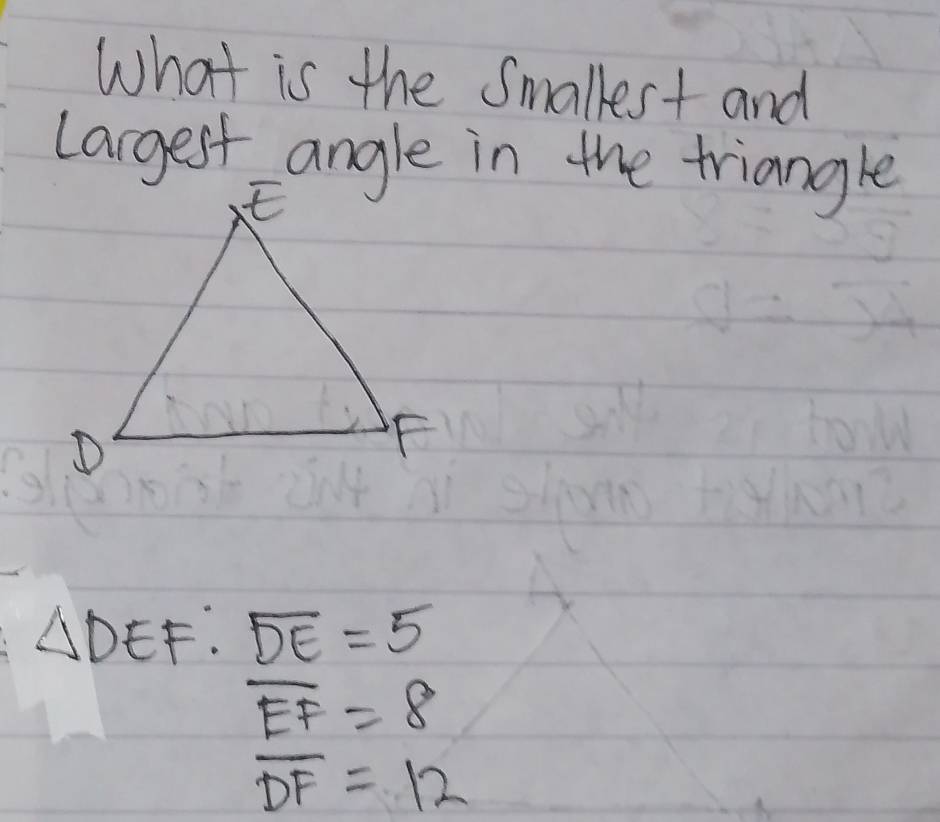 What is the Smallest and
Largest angle in the triangle
E
D
F
△DEF: D̅E̅ = 5
E̅F̅ = 8
D̅F̅ = 12